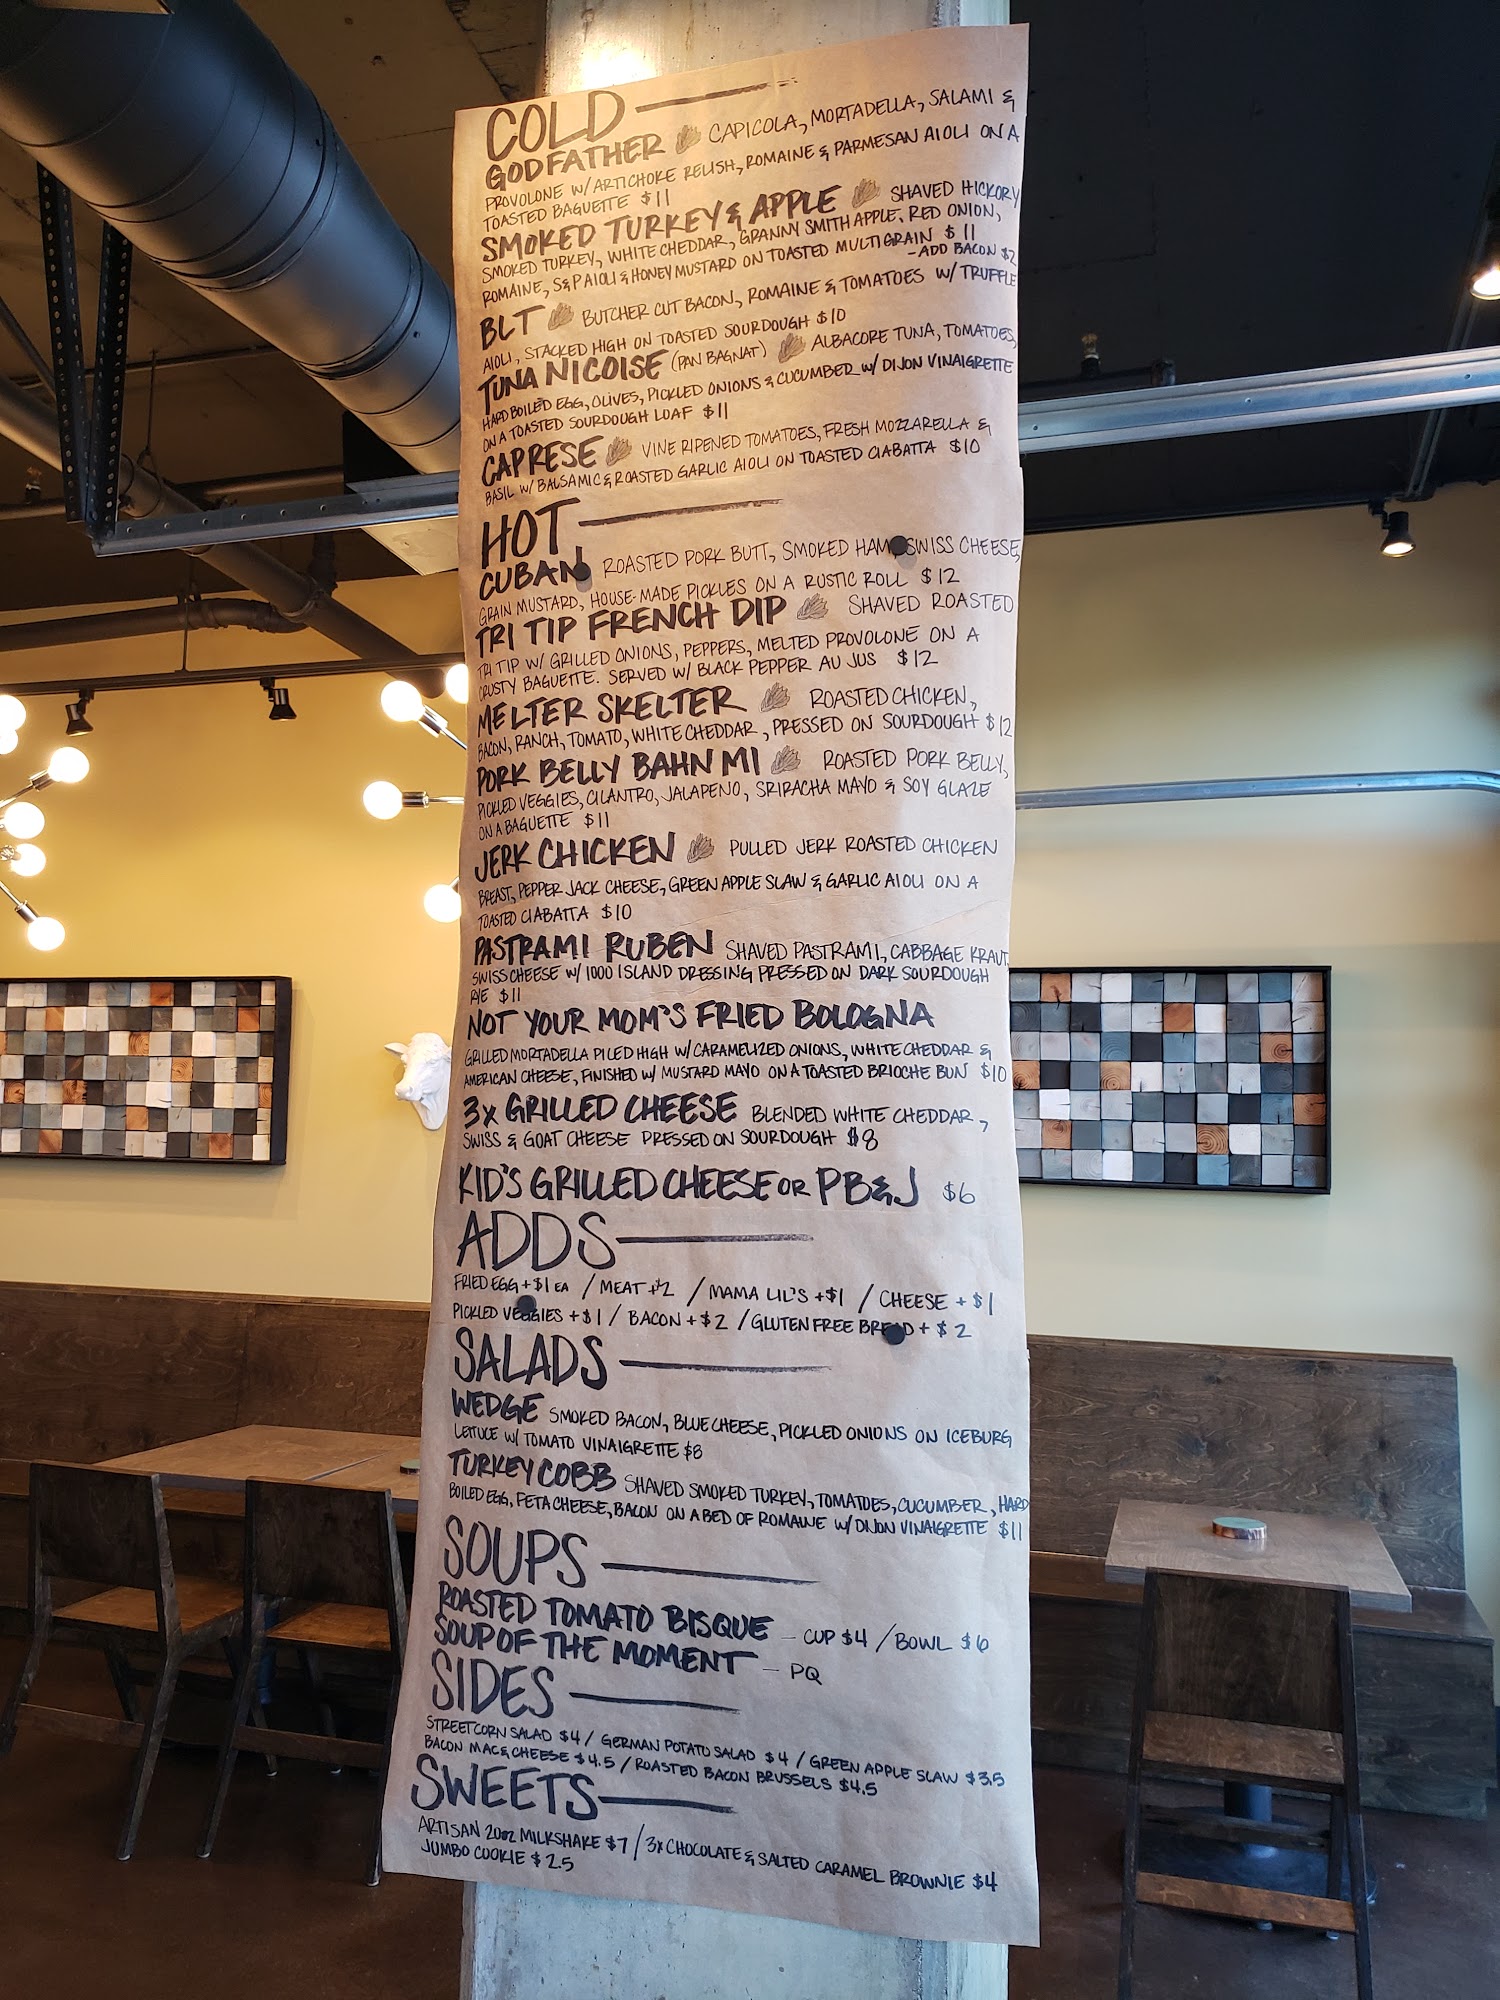 COLD
GODFATHER CAPICOLA, MORTADELLA, SALAMI &
PROVOLONE W/ ARTICHOKE RELISH, ROMAINE & PARMESAN AIOLI ON A
TOASTED BAGUETTE $11
SMOKED TURKEY & APPLE SHAVED HICKORY
SMOKED TURKEY, WHITE CHEDDAR, GRANNY SMITH APPLE, RED ONION,
ROMAINE, S&P AIOLI & HONEY MUSTARD ON TOASTED MULTIGRAIN $11
-ADD BACON $2
BLT BUTCHER CUT BACON, ROMAINE & TOMATOES W/ TRUFFLE
AIOLI, STACKED HIGH ON TOASTED SOURDOUGH $10
TUNA NICOISE (PAN BAGNAT) ALBACORE TUNA, TOMATOES,
HARD BOILED EGG, OLIVES, PICKLED ONIONS & CUCUMBER W/ DIJON VINAIGRETTE
ON A TOASTED SOURDOUGH LOAF $11
CAPRESE VINE RIPENED TOMATOES, FRESH MOZZARELLA &
BASIL W/ BALSAMIC & ROASTED GARLIC AIOLI ON TOASTED CIABATTA $10
HOT
CUBAN ROASTED PORK BUTT, SMOKED HAM, SWISS CHEESE,
GRAIN MUSTARD, HOUSE-MADE PICKLES ON A RUSTIC ROLL $12
TRI TIP FRENCH DIP SHAVED ROASTED
TRI TIP W/ GRILLED ONIONS, PEPPERS, MELTED PROVOLONE ON A
CRUSTY BAGUETTE. SERVED W/ BLACK PEPPER AU JUS $12
MELTER SKELTER ROASTED CHICKEN,
BACON, RANCH, TOMATO, WHITE CHEDDAR, PRESSED ON SOURDOUGH $12
PORK BELLY BAHN MI ROASTED PORK BELLY,
PICKLED VEGGIES, CILANTRO, JALAPENO, SRIRACHA MAYO & SOY GLAZE
ON A BAGUETTE $11
JERK CHICKEN PULLED JERK ROASTED CHICKEN
BREAST, PEPPER JACK CHEESE, GREEN APPLE SLAW & GARLIC AIOLI ON A
TOASTED CIABATTA $10
PASTRAMI RUBEN SHAVED PASTRAMI, CABBAGE KRAUT,
SWISS CHEESE W/ 1000 ISLAND DRESSING PRESSED ON DARK SOURDOUGH
RYE $11
NOT YOUR MOM'S FRIED BOLOGNA
GRILLED MORTADELLA PILED HIGH W/ CARAMELIZED ONIONS, WHITE CHEDDAR &
AMERICAN CHEESE, FINISHED W/ MUSTARD MAYO ON A TOASTED BRIOCHE BUN $10
3X GRILLED CHEESE BLENDED WHITE CHEDDAR,
SWISS & GOAT CHEESE PRESSED ON SOURDOUGH $8
KID'S GRILLED CHEESE OR PB&J $6
ADDS
FRIED EGG +$1 EA / MEAT +2 / MAMA LIL'S +$1 / CHEESE + $1
PICKLED VEGGIES +$1 / BACON + $2 / GLUTEN FREE BREAD + $2
SALADS
WEDGE SMOKED BACON, BLUE CHEESE, PICKLED ONIONS ON ICEBURG
LETTUCE W/ TOMATO VINAIGRETTE $8
TURKEY COBB SHAVED SMOKED TURKEY, TOMATOES, CUCUMBER, HARD
BOILED EGG, FETA CHEESE, BACON ON A BED OF ROMAINE W/ DIJON VINAIGRETTE $11
SOUPS
ROASTED TOMATO BISQUE - CUP $4 / BOWL $6
SOUP OF THE MOMENT - PQ
SIDES
STREET CORN SALAD $4 / GERMAN POTATO SALAD $4 / GREEN APPLE SLAW $3.5
BACON MAC & CHEESE $4.5 / ROASTED BACON BRUSSELS $4.5
SWEETS
ARTISAN 20oz MILKSHAKE $7 / 3X CHOCOLATE & SALTED CARAMEL BROWNIE $4
JUMBO COOKIE $2.5